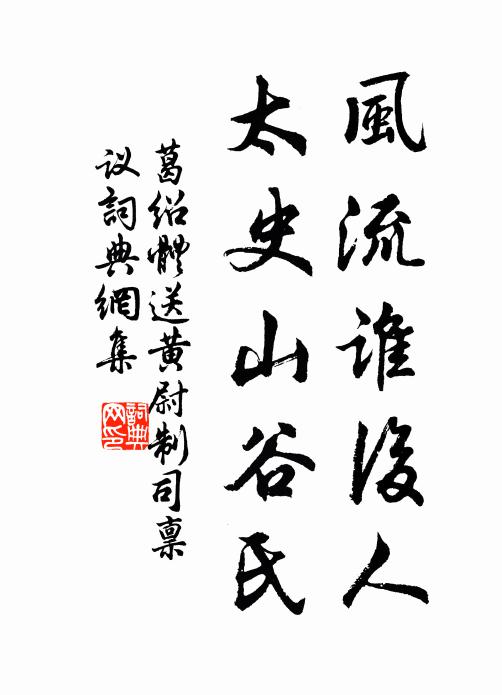 風流谁後人
太史山谷氏
葛绍體送黄尉制司稟
议詞典網集
詞典网印